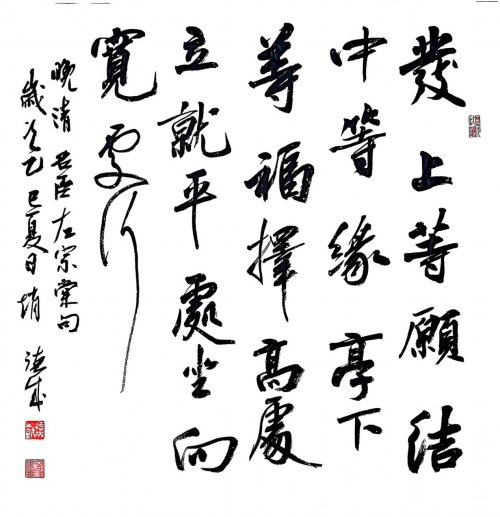 發上等願結
中等緣享下
等福擇高處
立就平處坐向
寬處行
晚清名臣左宗棠句
歲次乙巳夏日